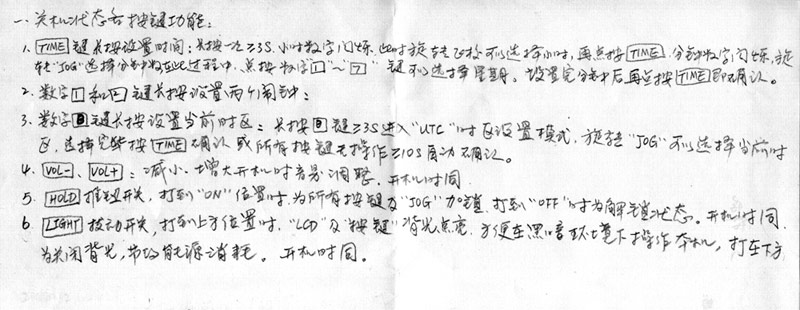 一、关机状态各按键功能：
1. TIME 键长按设置时间：长按一次≥3S. 小时数字闪烁. 此时旋转飞梭可以选择小时，再点按 TIME. 分钟数字闪烁，旋
转"JOG"选择分钟数. 在此过程中，点按数字 1 ~ 7 键可以选择星期。设置完分钟后再点按 TIME 即确认。
2. 数字 1 和 2 键长按设置两个闹钟；
3. 数字 键长按设置当前时区：长按 键≥3S进入"UTC"时区设置模式，旋转"JOG"可以选择当前时
区，选择完毕按 TIME 确认或所有按键无操作≥10S自动确认。
4. VOL-、VOL+：减小、增大开机时音量调整. 开机时同.
5. HOLD 推钮开关，打到"ON"位置时. 为所有按键及"JOG"加锁. 打到"OFF"时为解锁状态。开机时同.
6. LIGHT 拨动开关，打到上方位置时. "LCD"及"按键"背光点亮. 方便在黑暗环境下操作本机，打在下方
为关闭背光，节约能源消耗。开机时同。